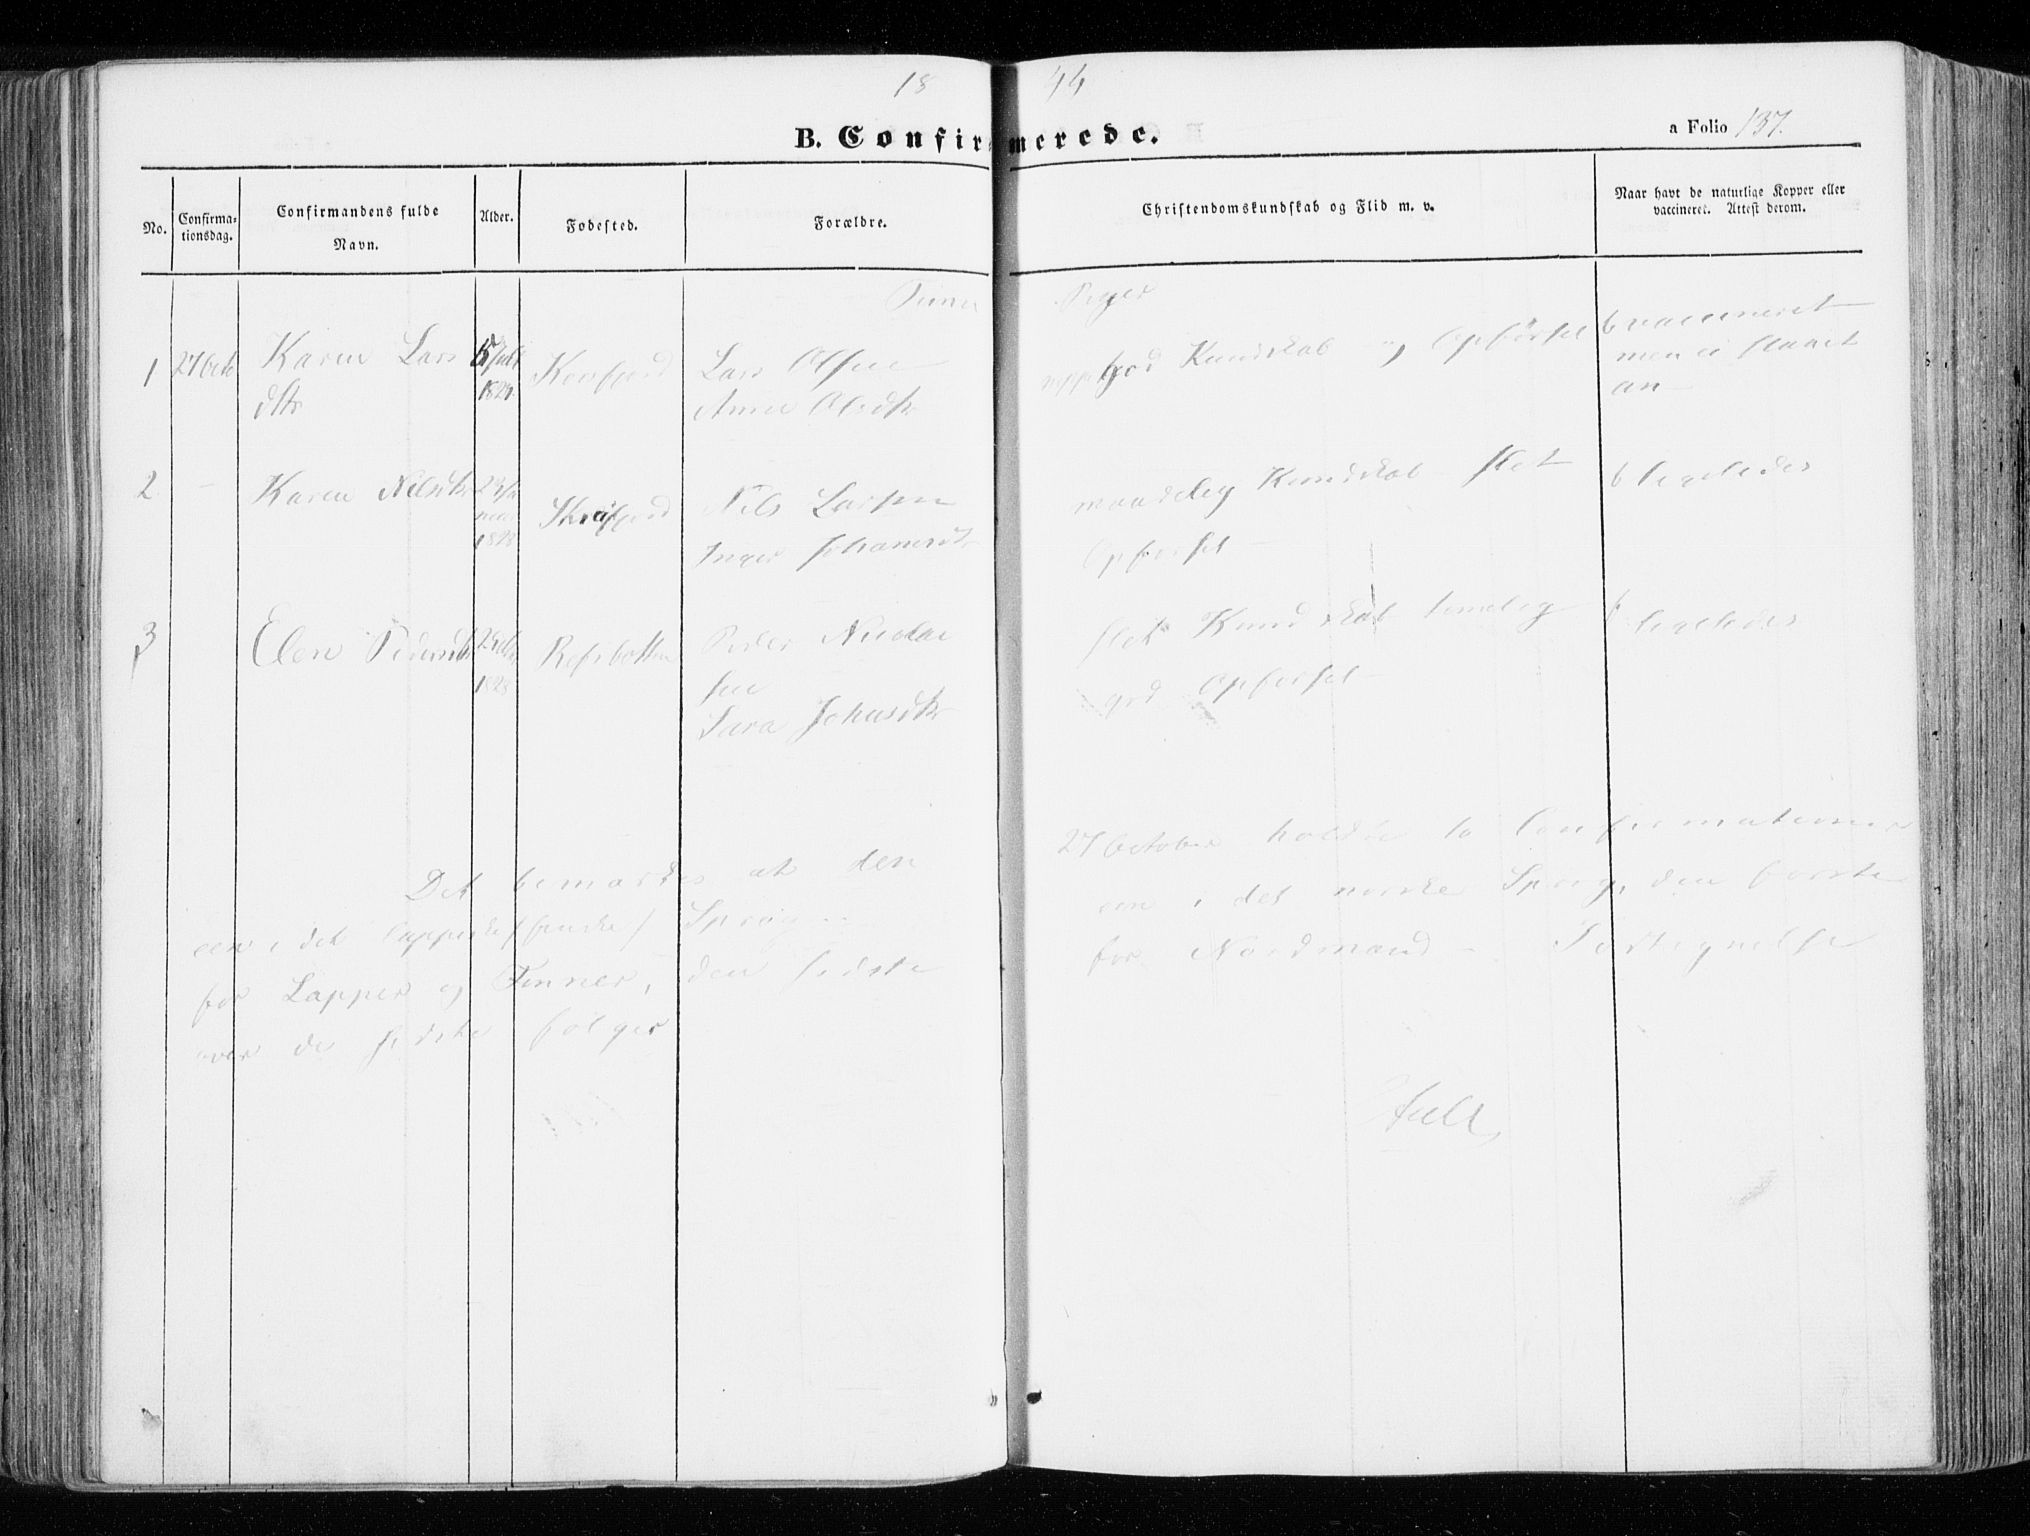 18 44
B. Confirmerede.
a Folio 137.
No.
Confirma-
tionsdag.
Confirmandens fulde
Navn.
Alder.
Fodested.
Forældre.
Christendomskundskab og Flid m. v.
Naar havt de naturlige Kopper eller
vaccineret. Attest derom.
Piger
1 27 Octo Karen Lars Lars Olsen god Kundskab og Opførsel vaccineret
dtr Anne Olsdtr men ei slaaet
an
2 Karen Nilsdtr Nils Larsen maadelig Kundskab slet ligeledes
1828 Inger Johannesdtr Opførsel
3 Elen Pedersdtr Refsbotten Peder Nicolai slet Kundskab temelig ligeledes
1828 sen god Opførsel
Sara Johnsdtr
Det bemærkes at den 27 October holdtes to Confirmationer
een i det lappiske (finske) Sprog een i det norske Sprog, den første
for Lapper og Finner, den sidste for Nordmænd - Fortegnelse
over de sidste følger